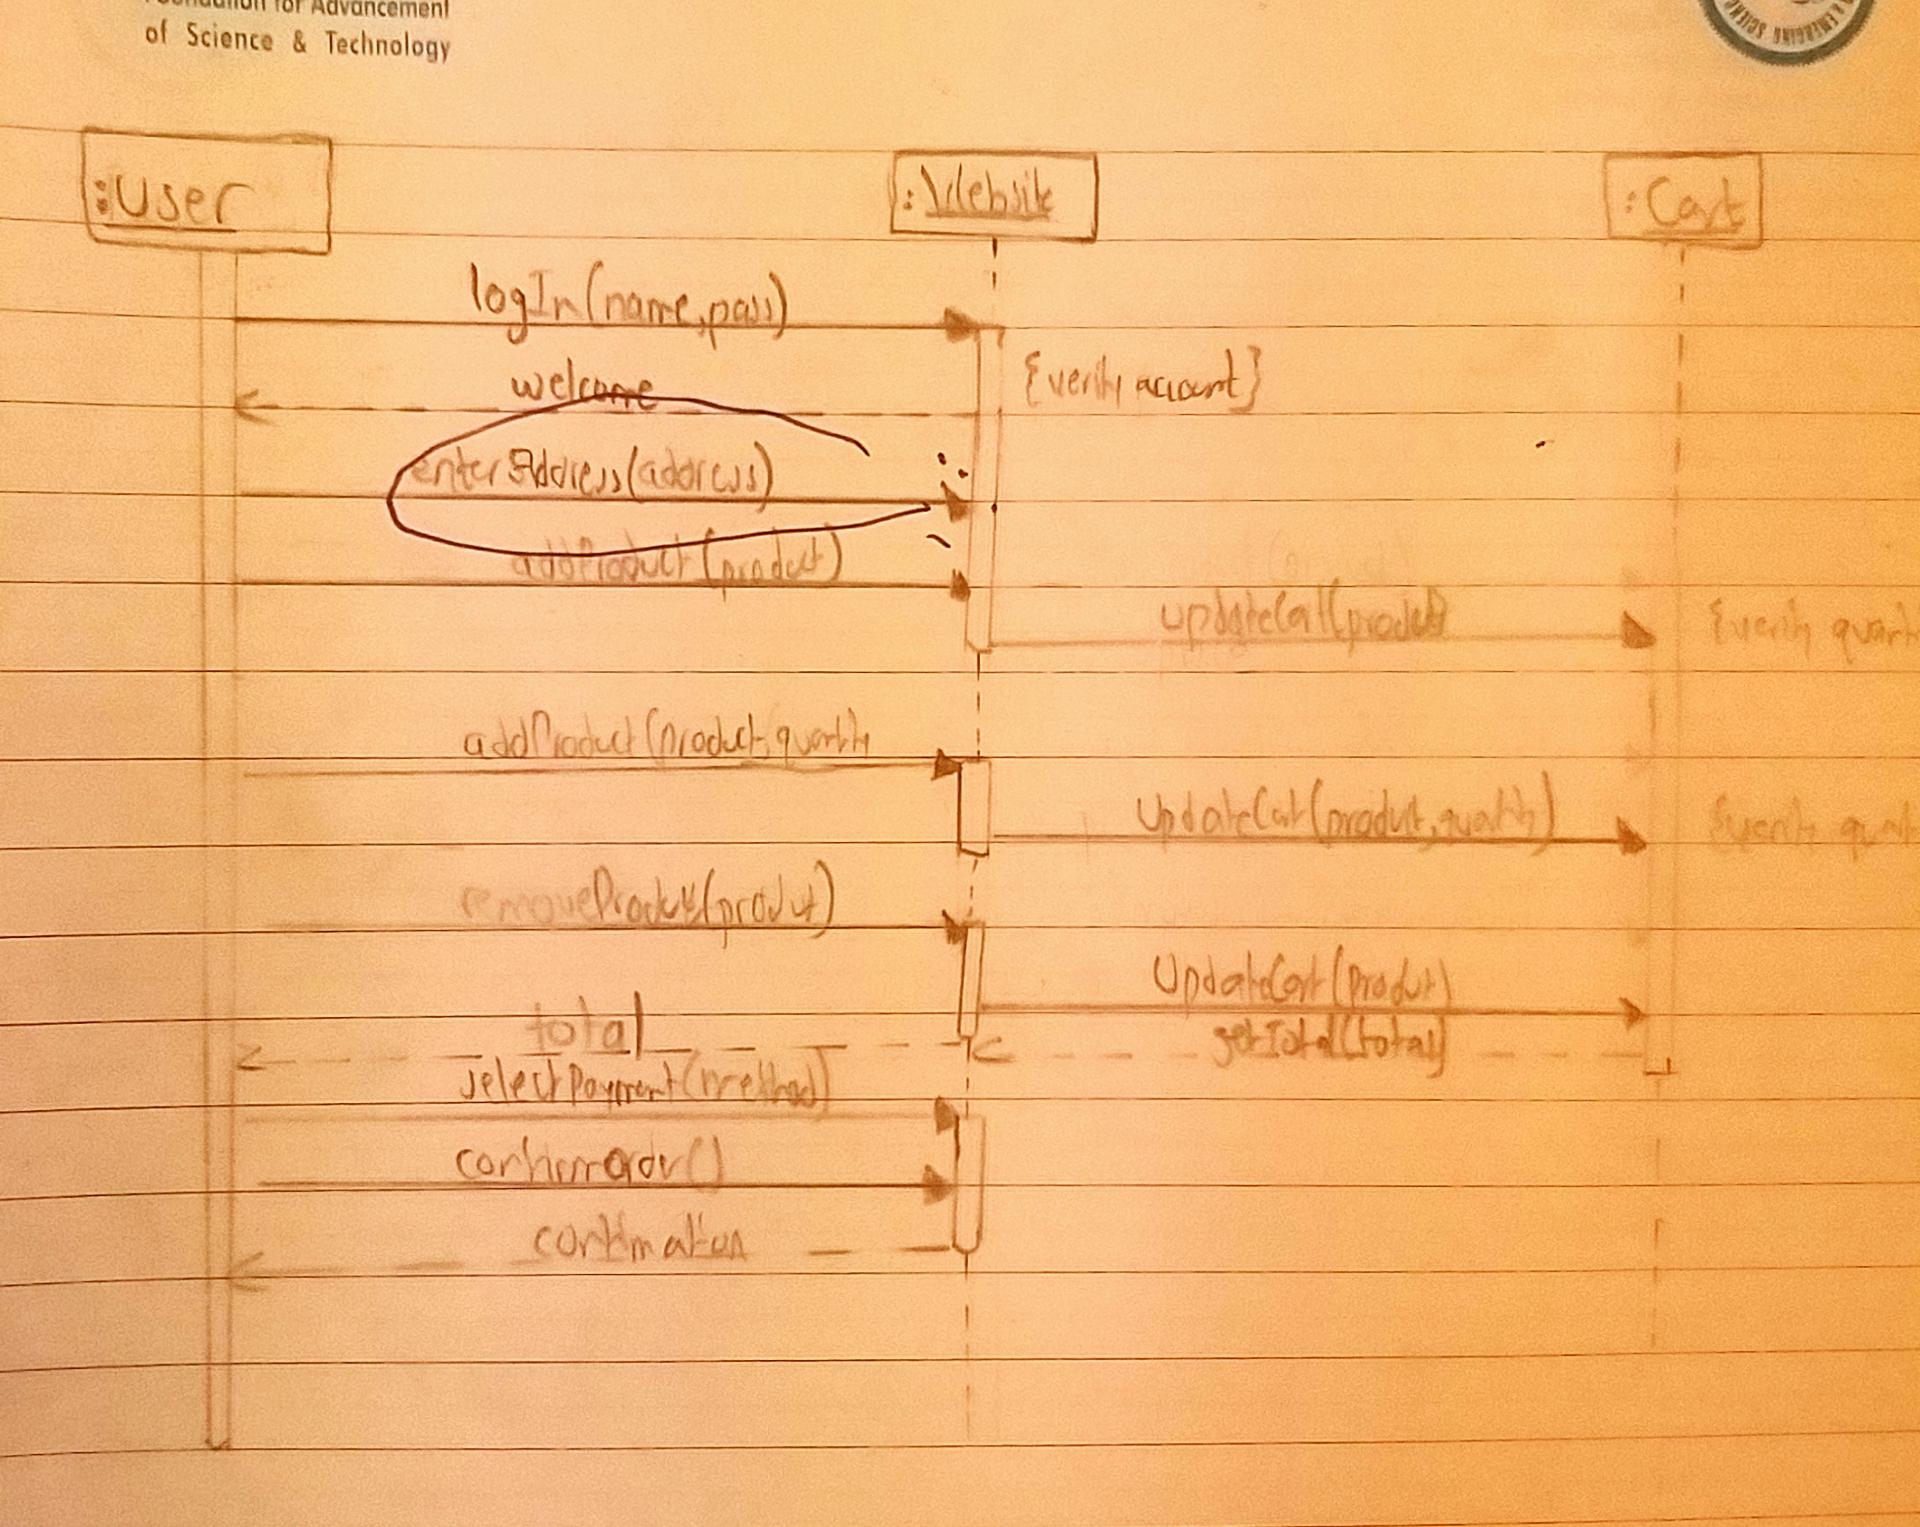 Foundation for Advancement
of Science & Technology
& EMERGING SCIENC
:User
:Website
:Cart
logIn(name,pass)
welcome
{verify account}
enterAddress(address)
addProduct(product)
updateCart(product)
{verify quant
addProduct(product,quantity
UpdateCart(product,quantity)
{verify quant
removeProduct(product)
UpdateCart(product)
total
getTotal(total)
selectPayment(method)
confirmOrder()
confirmation